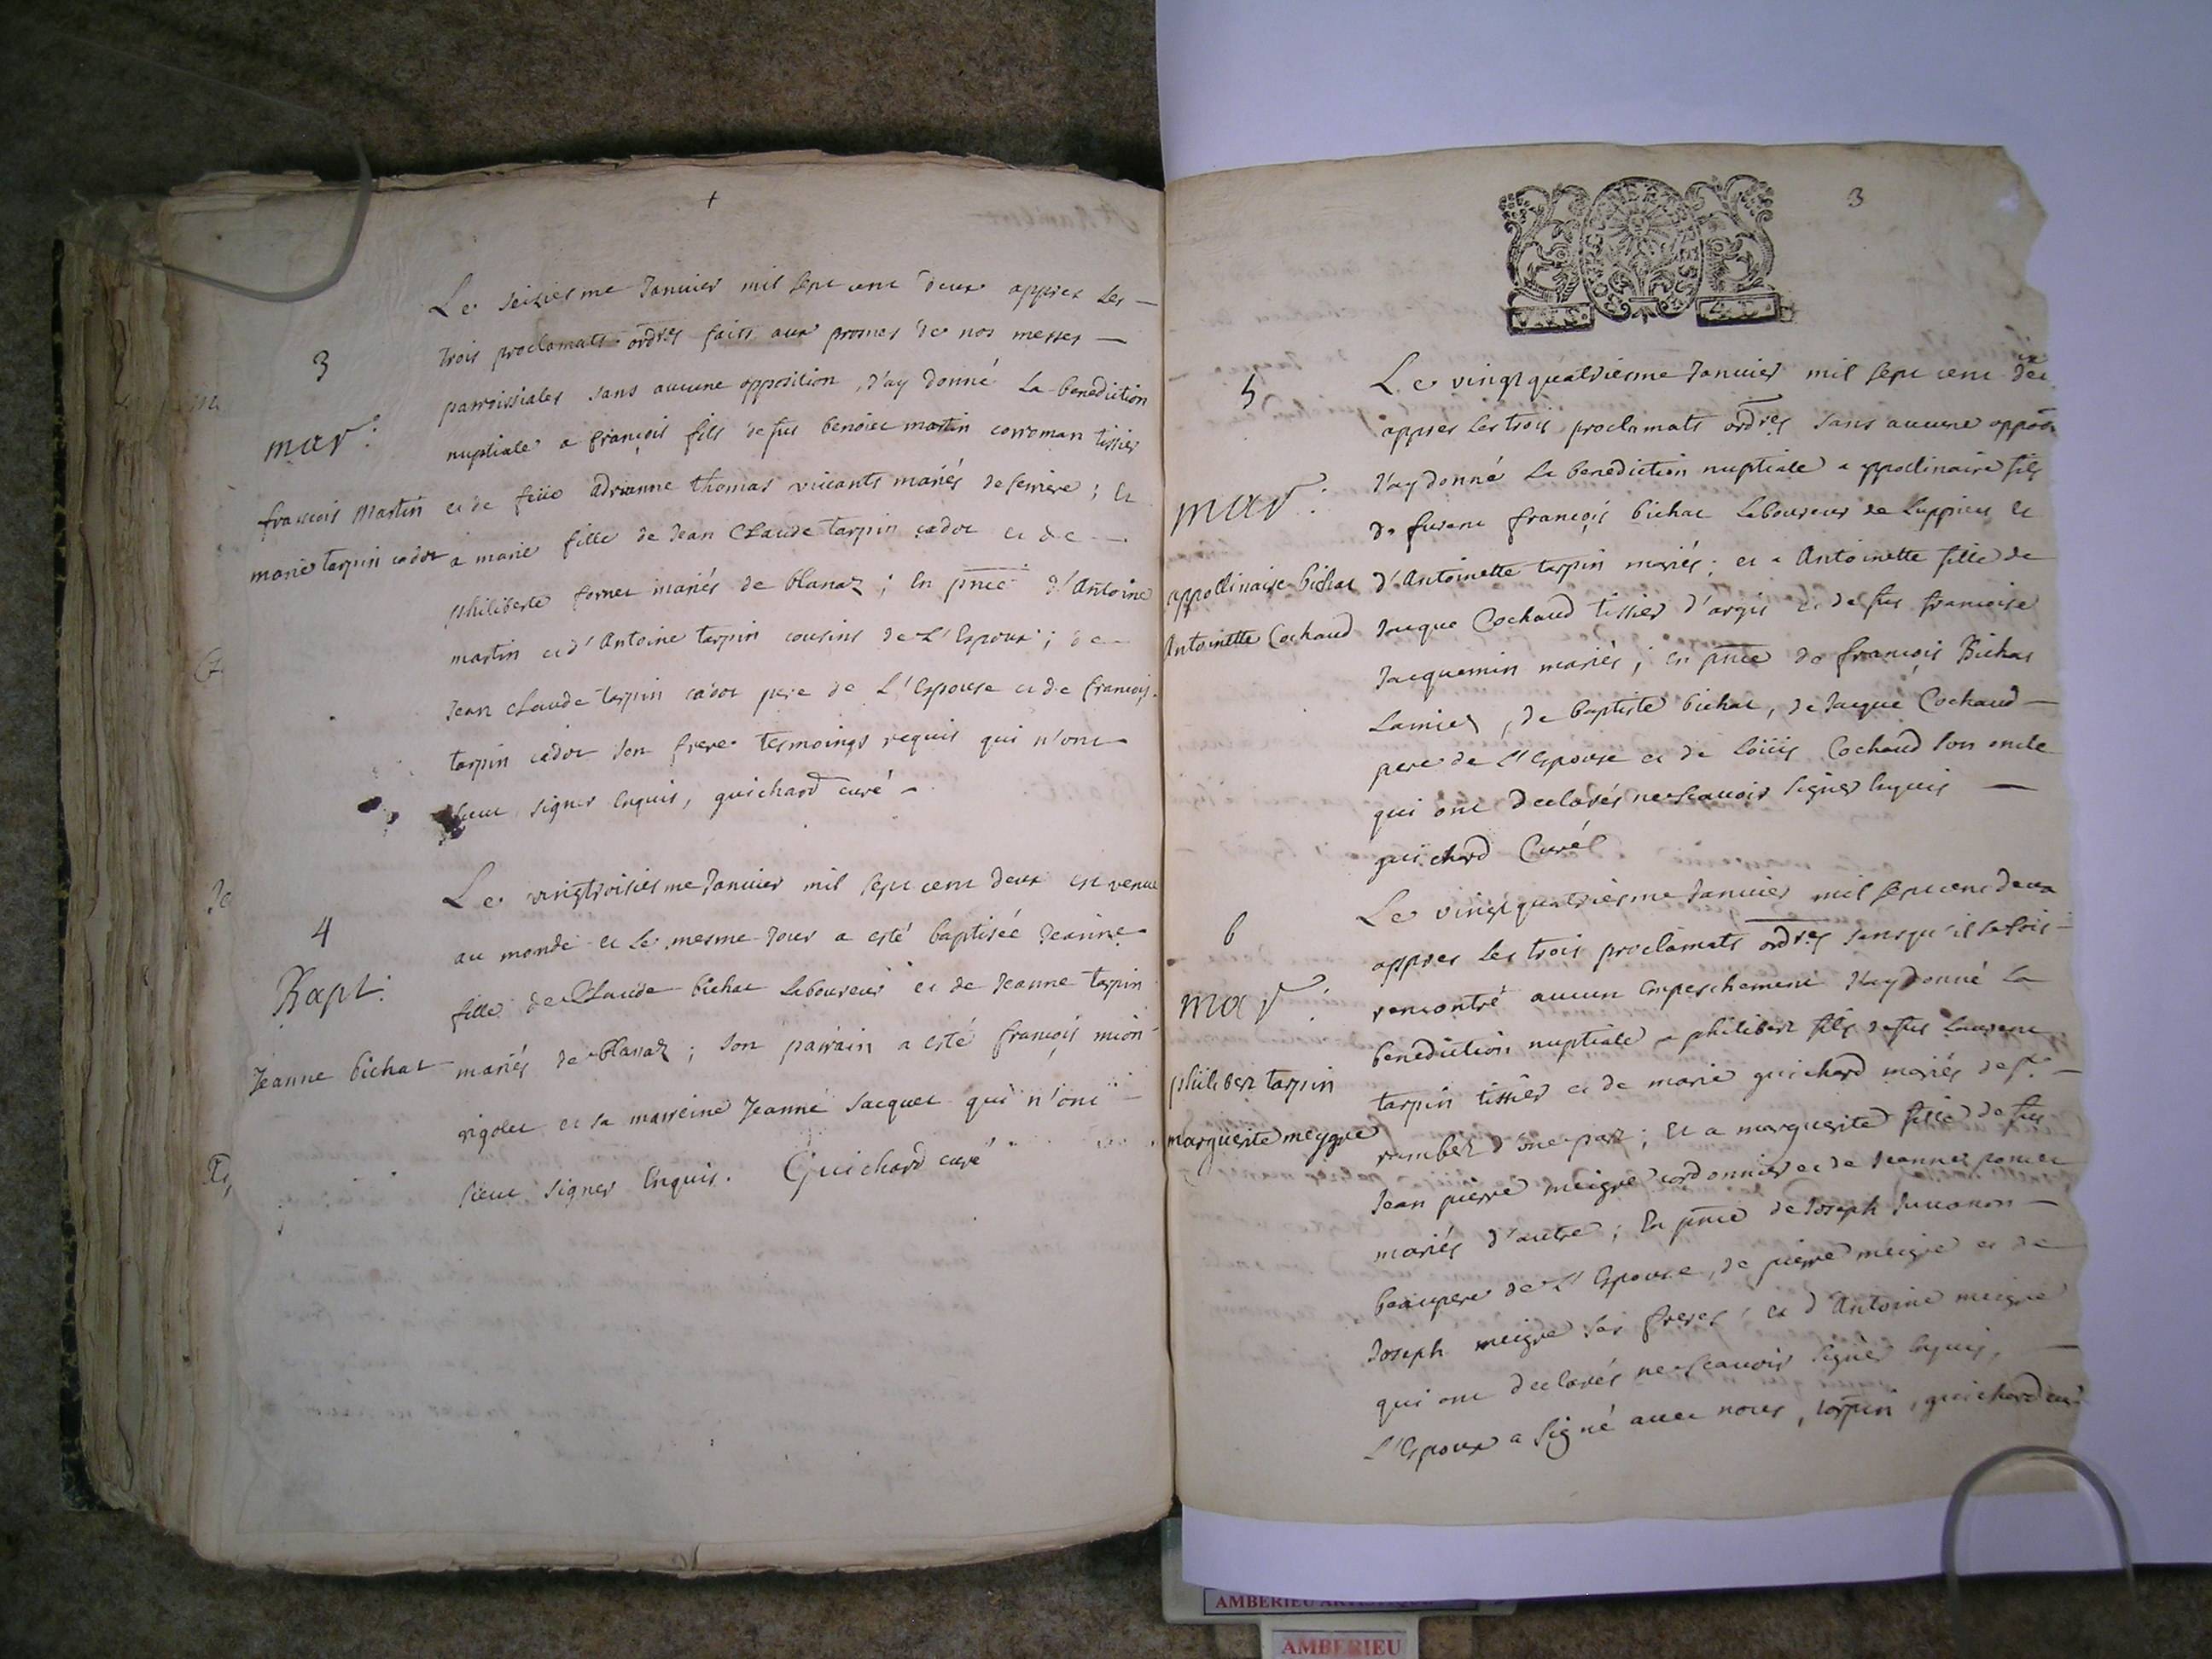 +
Le seiziesme Januier mil sept cent deux appres les
3
trois proclamats ordres faits aux prosnes de nos messes
parroissiales sans aucune opposition, J'ay donné la benediction
mar:
nuptiale a françois fils de feu benoict martin corroman tissier
françois Martin
et de feüe adrianne thomas viuants mariés de ; et
marie tarpin cador
a marie fille de Jean Claude tarpin cador et de
philiberte fornet mariés de blanaz ; en pnce d'Antoine
martin et d'Antoine tarpin cousins de L'Espoux ; de
Jean Claude tarpin cador pere de L'Espouse et de françois
tarpin cador son frere tesmoings requis qui n'ont
sceut signer enquis, guichard curé
Le vingtroisiesme Januier mil sept cent deux est venue
4
au monde et le mesme Jour a esté baptisée Jeanne
Bapt:
fille de Claude bichat laboureur et de Jeanne tarpin
Jeanne bichat
mariés de blanaz ; son parrain a esté françois mion
rigolet et sa marreine Jeanne Jacquet qui n'ont
sceut signer enquis. Guichard curé
3
Le vingtquatriesme Januier mil sept cent deux
5
appres les trois proclamats ordres sans aucune oppoon
mar:
J'ay donné la benediction nuptiale a appollinaire fils
de furent françois bichat laboureur de Luppieu et
appollinaire bichat
d'Antoinette tarpin mariés ; et a Antoinette fille de
Antoinette Cochaud
Jaque Cochaud tissier d'argis et de feu francoise
Jacquemin mariés ; en pnce de françois Bichat
, de baptiste bichat, de Jaque Cochaud
pere de L'Espouse et de loüis Cochaud son oncle
qui ont declarés ne scauoir signer enquis
guichard Curé
Le vingtquatriesme Januier mil sept cent deux
6
appres les trois proclamats ordres sans qu'il se soit
mar:
rencontré aucun empeschement J'ay donné la
benediction nuptiale a philibert fils de feu Laurent
philibert tarpin
tarpin tissier et de marie guichard mariés de st
marguerite meygre
rambert d'une part ; et a marguerite fille de feu
Jean pierre meigre cordonnier et de Jeanne poncet
mariés d'autre ; En pnce de Joseph Juuanon
beaupere de L'Espouse, de pierre meigre et de
Joseph meigre ses freres, et d'Antoine meigre
qui ont declarés ne scauoir signer enquis,
L'Espoux a signé auec nous, tarpin, guichard curé
AMBERIEU
AMBERIEU